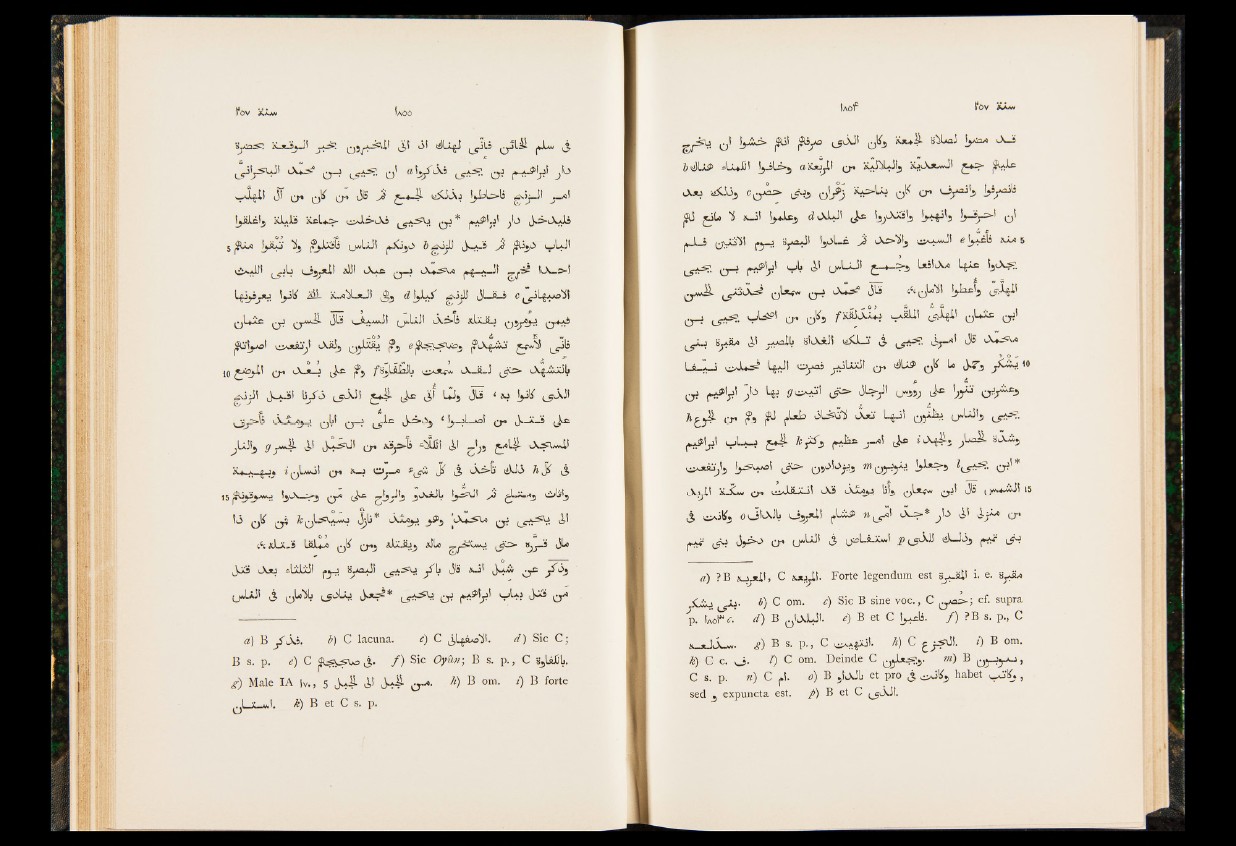 سنة ٢٥٧ ١٨٥٤
قد مضوا لصلاة الجمعة وكان الذى صرفهم انهم خشوا ان يخرج
عليهم جمع السعديّة والبلاليّة من المربّعة a وخافوا الكمناء هناك b
فانصرفوا وانصرف من كان بناحية زهران وبنى حصن c وذلك بعد
ان احرقوا وانهبوا واقتدروا على البلد d وعلموا انه لا مانع لهم
5 منه فأغبّوا e السبت والاحد ثم غادوا البصرة يوم الاثنين فلم
يجدوا عنها مدافعا وجُمع الناس الى باب ابرهيم بن يحيى
المهلّبىّ وأعطوا الامان، قال محمّد بن سمعان فحدّثنى الحسن
ابن عثمان المهلّبىّ الملقّب بمُنْدَلِقَة f وكان من اصحاب يحيى بن
محمد قال امرنى يحيى فى تلك الغداة بالمصير الى مقبرة بنى
10 يَشْكُر وحمل ما كان هناك من التنانير فصرت اليها فحملت نيّفا
وعشرين تنّورا على رؤوس الرجال حتى اتيت g بها دار ابرهيم بن
يحيى والناس يظنّون انها تعدّ لاتخاذ طعام لهم وهم من الجوع h
وشدّة الحصار والجهد i على امر عظيم وكثر k الجمع بباب ابراهيم
* ابن يحيى l وجعلوا ينوبون m ويزدادون حتى اصبحوا وارتفعت
15 الشمس، قال ابن سمعان وأنا يومئذ قد انتقلت من سكّة المربد
من منزلى الى دار *جدّ امّى n هشام المعروف بالدافّ o وكانت فى
بنى تميم وذلك للذى p استفاض فى الناس من دخول بنى تميم
a) ?B المعربه, C المربعه. Forte legendum est المقبرة i. e. مقبرة
بنى يشكر. b) C om. c) Sic B sine voc., C حصن; cf. supra
p. ١٨٥٣ c. d) B البلدان. e) B et C فاعبوا. f) ?B s. p., C
g) B s. p., C انتهيت. h) C الجزع. i) B om.
k) C c. ف. l) C om. Deinde C ويجعلون. m) B ينوبون,
C s. p. n) C ام. o) B بالداو et pro وكانت فى habet وكاتب,
sed و expuncta est. p) B et C الذى.
سنة ٢٥٧ ١٨٥٥
فى سلم الخائن فانّى لهناك اذ اتى المخبرون بخبر الوقعة بحضرة
دار ابراهيم بن يحيى فذكروا a ان يحيى بن محمّد البحرانىّ
امر الزنج فاحاطوا بذلك الجمع ثم قال من كان من آل المهلّب
فليدخل دار ابرهيم * بن يحيى فدخلت جماعة قليلة واغلقوا
5 الباب دونهم ثم قيل للزنج b دونكم الناس فأقتلوهم ولا تُبقوا منهم
احدا فخرج اليهم محمد بن عبد الله المعروف بأبى الليث
الاصبهانىّ c فقال للزنج كيلوا d وفى العلامة التى كانوا يعرفونها
فيمن يؤمرون بقتله فأخذ الناسَ السيفُ قال الحسن بن عثمان
فانّى لأسمع تشهّدهم وضجيجهم e وهم يُقْتَلون ولقد ارتفعت اصواتهم
10 بالتشهّد حتى لقد سُمعت بالطفاوة f وهم على بُعْد من الموضع
الذى كانوا به، قال ولمّا أتى على الجمع الذى ذكرنا اقبل الزنج
على قتل من اصابوا، ودخل علىّ بن ابان يومئذ فأحرق
المسجد الجامع وراح الى الكلّاء فأحرقه من الحَبْل الى الجسر g والنار
فى كلّ h ذلك تأخذ فى كلّ شىء مرّت به من انسان i وبهيمة
15 واثاث ومتاع ثم الحّوا بالغدوّ والرواح على من وجدوا يسوقونهم
الى يحيى بن محمد، وهو يومئذ *نازل بسَيْحان k فمن كان ذا
مال قرّره حتى يستخرج ماله ويقتله ومن كان مملقا قتله،
وذكر عن شبل انه قال باكر يحيى البصرة يوم الثلثاء بعد قتل
من قتل بباب ابرهيم بن يحيى *فجعل ينادى بالامان فى الناس
a) B فذكر. b) C lacuna. c) C الاصفهانى. d) Sic C;
B s. p. e) C فى ضجيجهم. f) Sic Oyûn; B s. p., C بالغداوة.
g) Male IA ١٧., 5 من الجبل الى الجبل. h) B om. i) B forte
استان. k) B et C s. p.